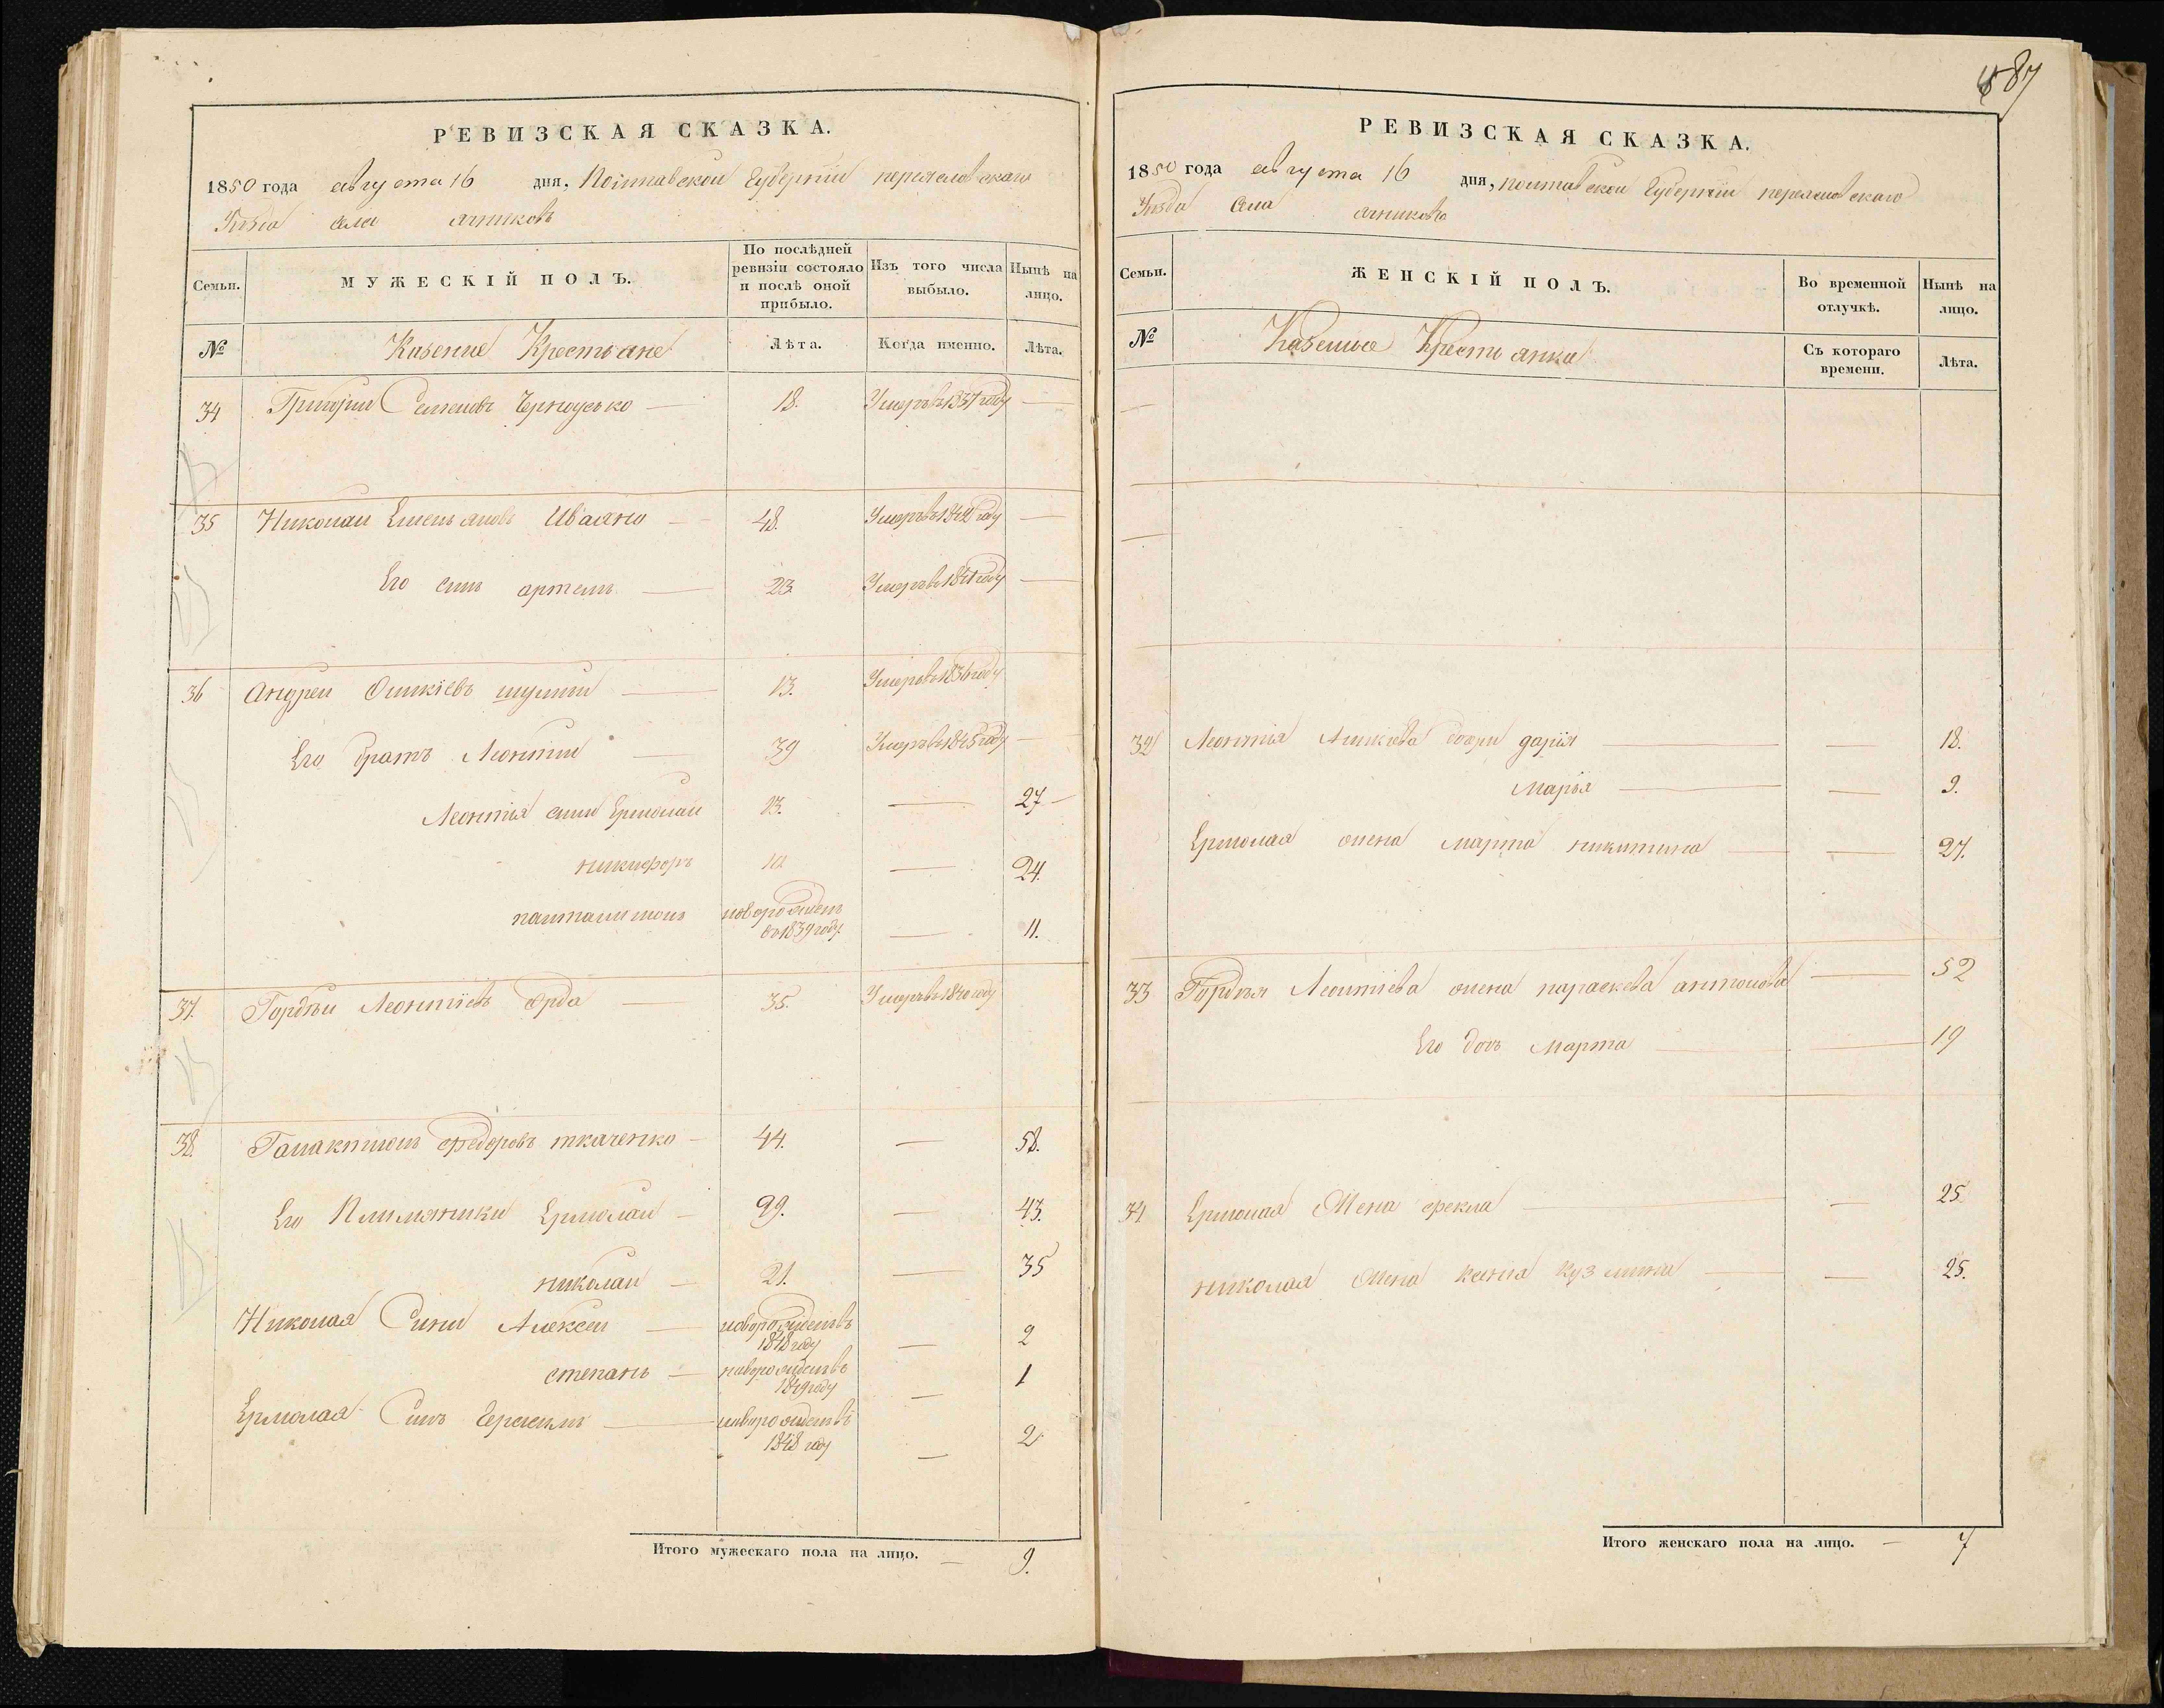 87
РЕВИЗСКАЯ СКАЗКА.
1850 года августа 16 дня, Полтавской Губерніи переяславскаго
Уѣзда села
Семьи.
МУЖЕСКІЙ ПОЛЪ.
По послѣдней ревизіи состояло и послѣ оной прибыло.
Изъ того числа выбыло.
Нынѣ на лицо.
№
Казенние Крестьяне
Лѣта.
Когда именно.
Лѣта.
34 Григорій Семеновъ Черноусько — 18. Умеръ въ 1837 году —
35 Николай Емельяновъ — 48. Умеръ въ году —
Его синъ артемъ — 23 Умеръ въ 1841 году —
36 Андрей шулики — 13. Умеръ въ 1836 году
Его братъ Леонтій — 39 Умеръ въ 1845 году —
Леонтія сини Ермолай 13. — 27 —
никифоръ 10 — 24.
пантелимонъ новорожденъ въ 1839 году. — 11.
37. Гордѣй Леонтіевъ Орда — 35. Умеръ въ 1840 году
38. Галактионъ федоровъ ткаченко — 44. — 58.
Его Племяники Ермолай — 29. — 43.
николай — 21. — 35
Николая Сини Алексей — новорожденъ въ 1848 году — 2
степанъ — новорожденъ въ 1849 году — 1
Ермолая Синъ Герасимъ — новорожденъ въ 1848 году — 2
Итого мужескаго пола на лицо. — 9.
РЕВИЗСКАЯ СКАЗКА.
1850 года августа 16 дня, полтавской Губерніи переяславскаго
Уѣзда села
Семьи.
ЖЕНСКІЙ ПОЛЪ.
Во временной отлучкѣ.
Нынѣ на лицо.
№
Казенные Крестьянки
Съ котораго времени.
Лѣта.
32 Леонтія дочери дарія — — 18.
Марья — — 9.
Ермолая жена марта никитина — — 27.
33 Гордѣя Леонтіева жена параскева антонова — 52
Его дочь Марта — — 19
34 Ермолая Жена фекла — — 25.
николая Жена ксенія кузмина — — 25.
Итого женскаго пола на лицо. — 7